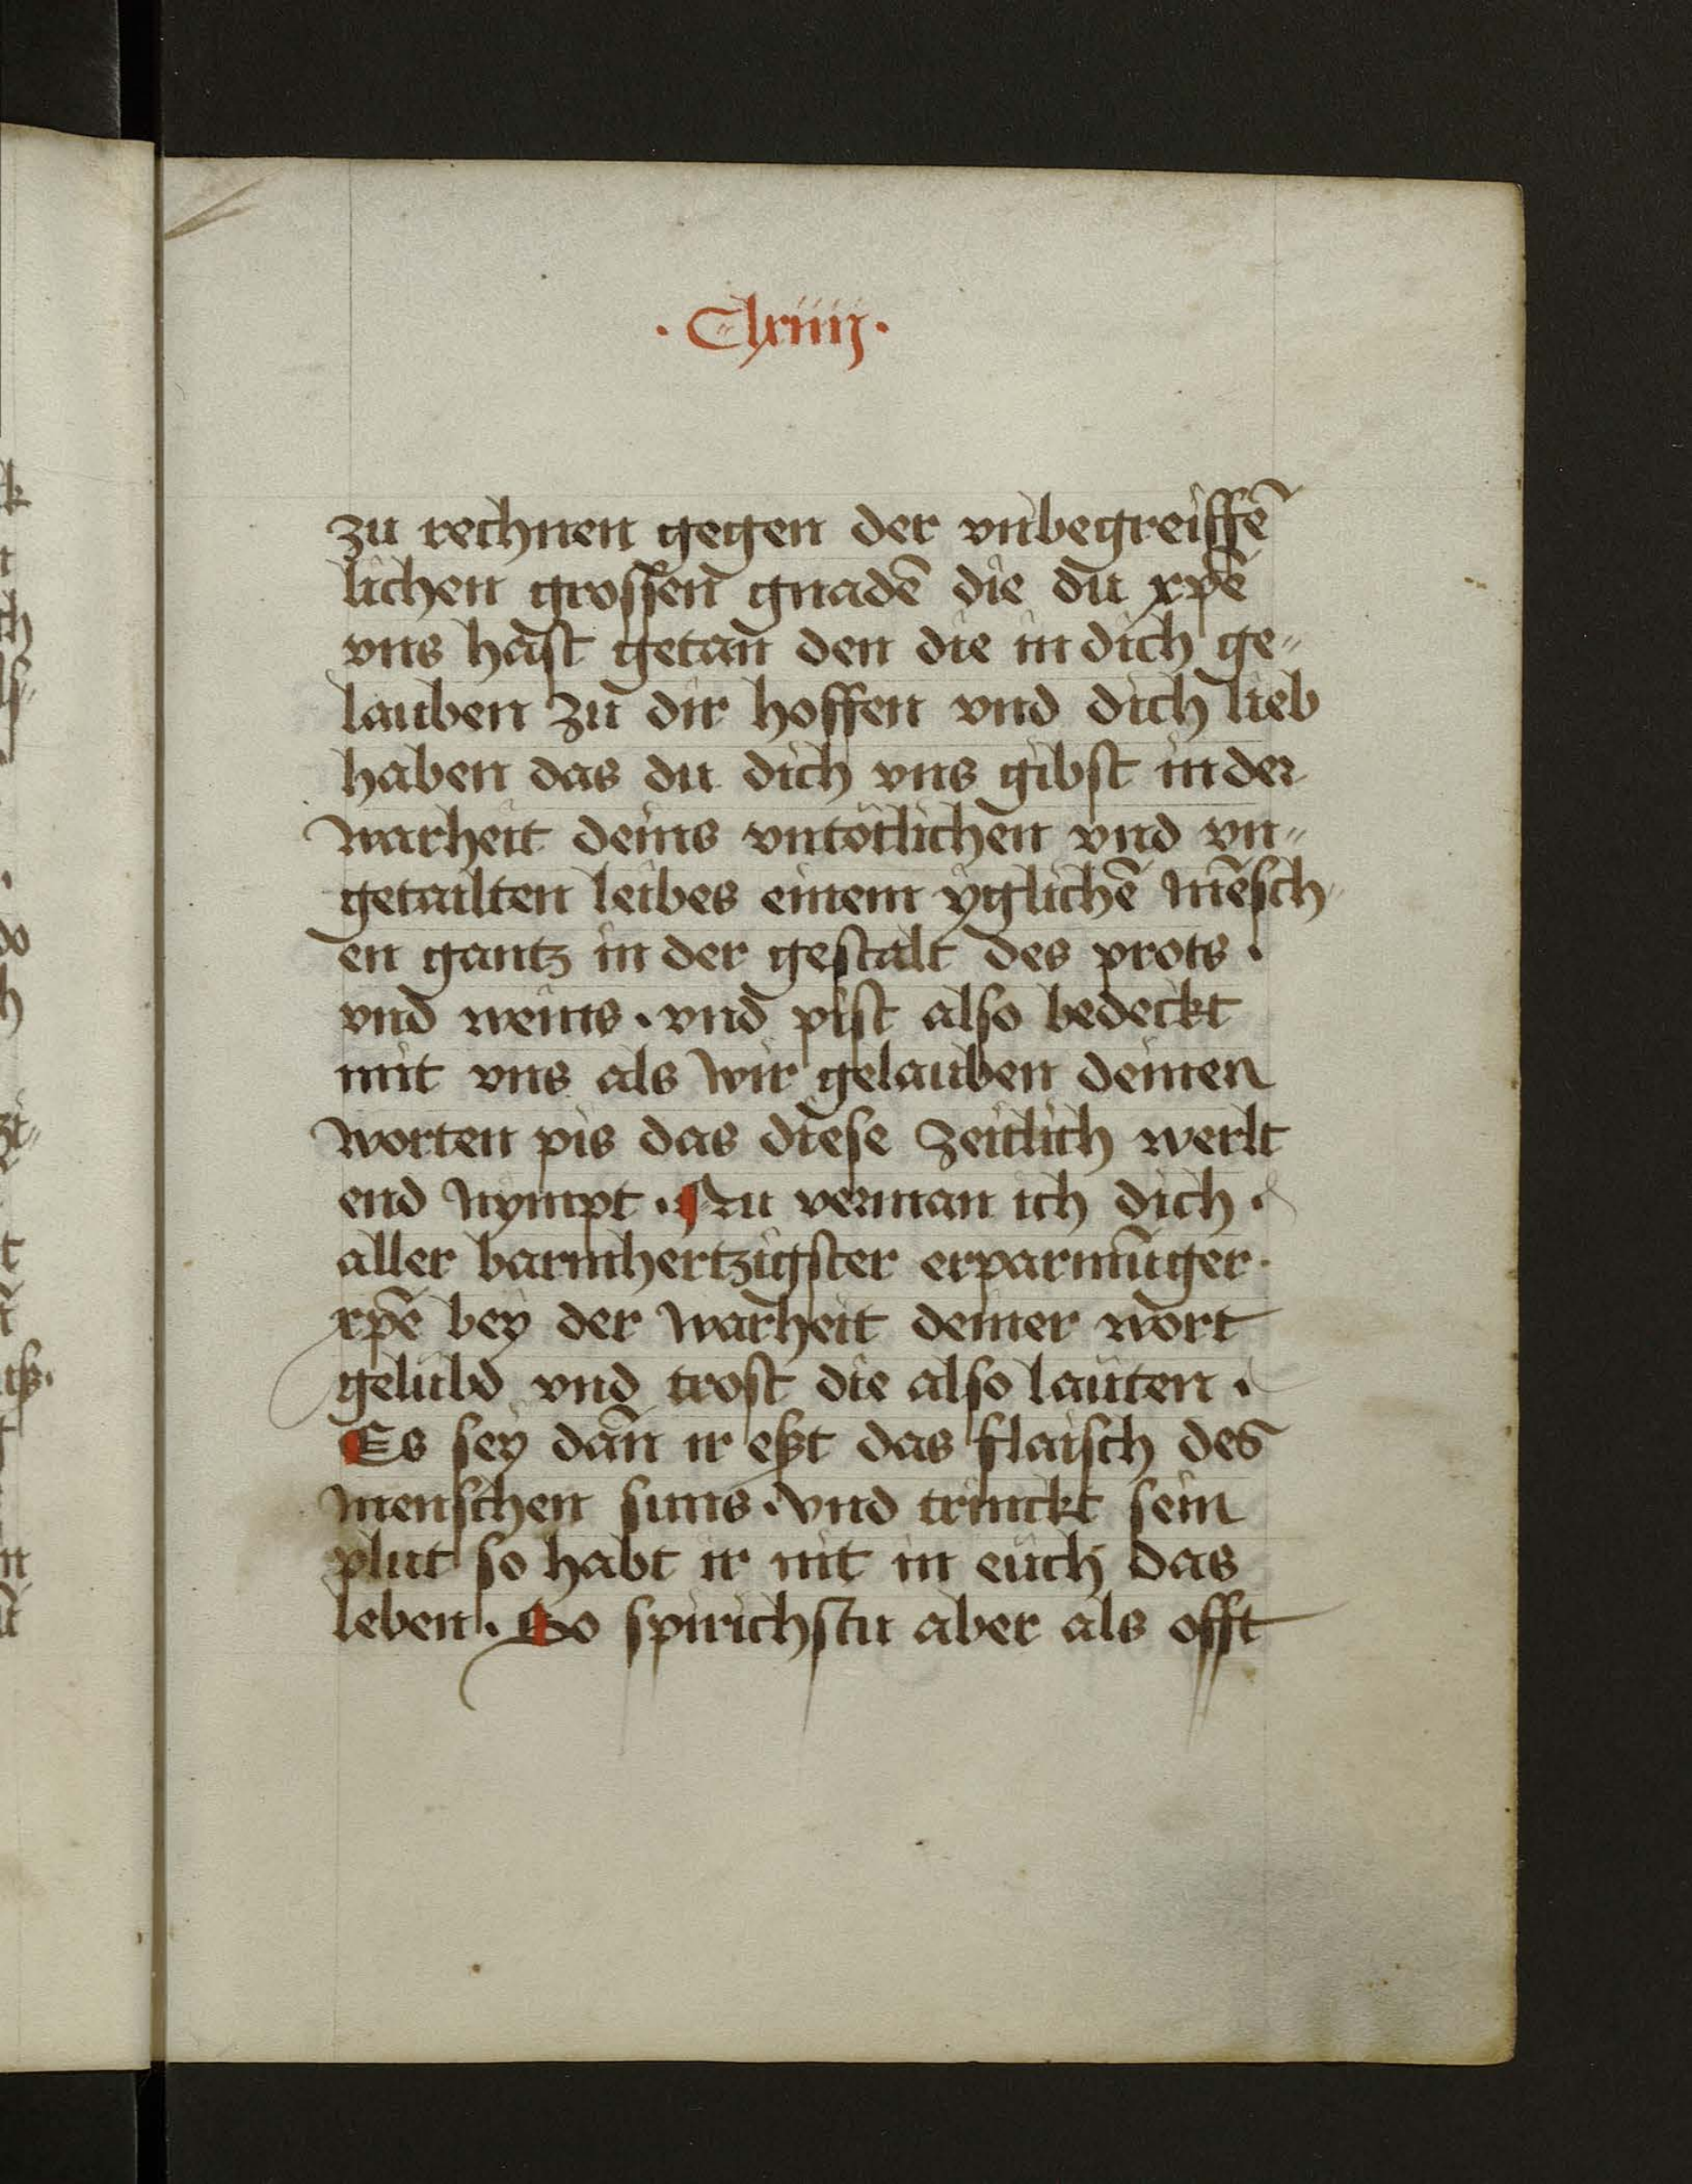 · Clxiiij ·
zu rechnen gegen der vnbegreiffē
lichen grossen gnadē die du xp̄e
vns hast getan den die in dich ge„
lauben zu dir hoffen vnd dich lieb
haben das du dich vns gibst in der
warheit deins vntötlichen vnd vn„
getailten leibes einem yglichē mēsch„
en gantz in der gestalt des prots ·
vnd weins · vnd pist also bedeckt
mit vns als wir gelauben deinen
worten pis das diese zeitlich werlt
end nympt · Nu verman ich dich ·
aller barmhertzigster erparmūger ·
xp̄e bey der warheit deiner wort
gelübd vnd trost die also lauten ·
Es sey dan̄ ir eßt das flaisch des
menschen suns · vnd trinckt sein
plut so habt ir nit in euch das
leben · So spirichstu aber als offt